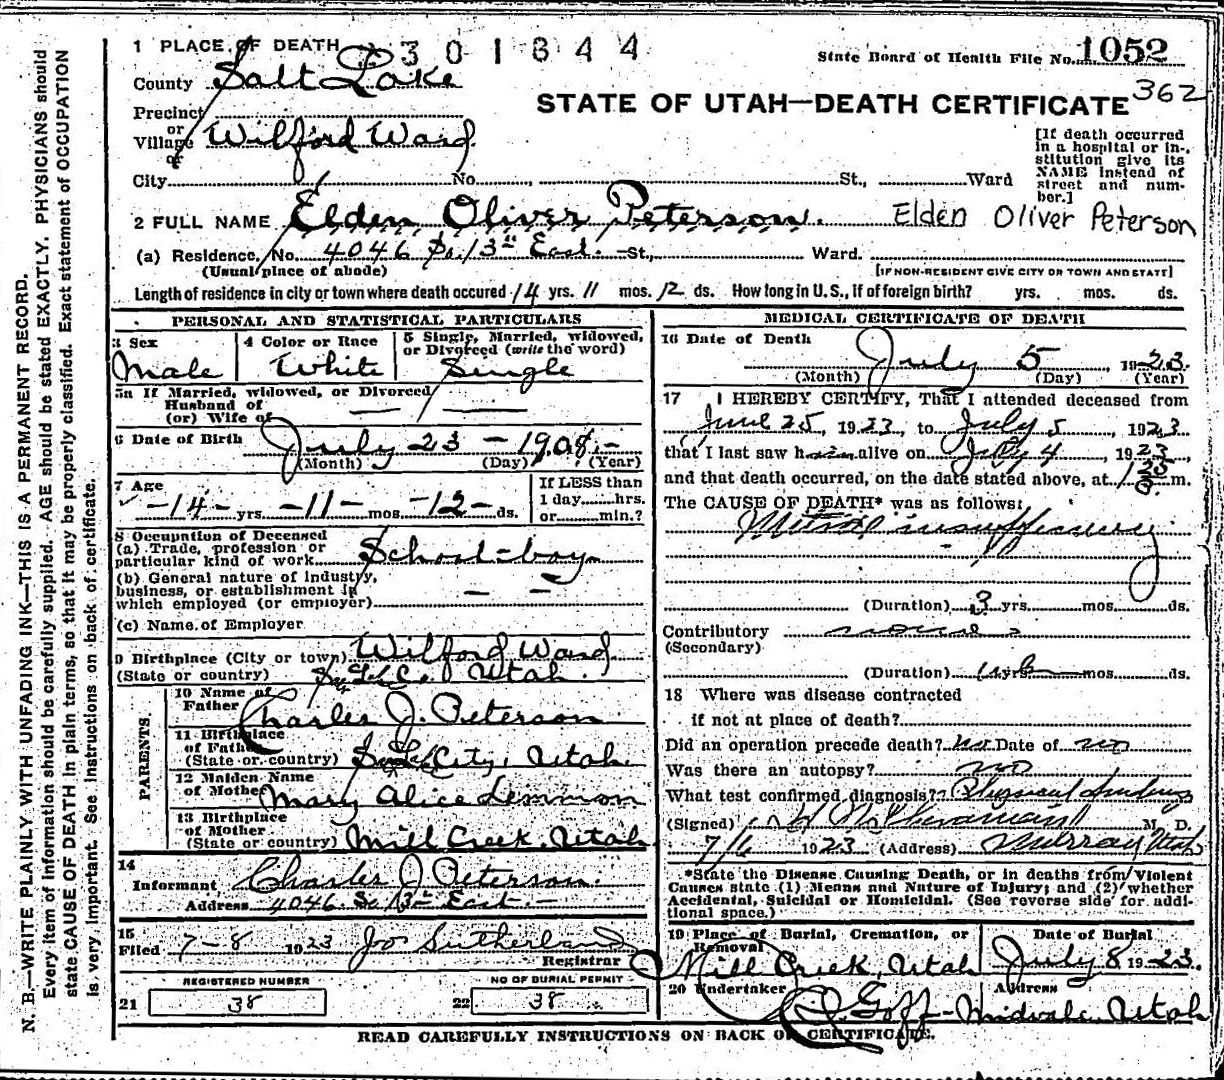 1 PLACE OF DEATH 301844
State Board of Health File No. 1052
County Salt Lake
362
STATE OF UTAH—DEATH CERTIFICATE
Precinct
or
Village Wilford Ward
or
City No. St., Ward
[If death occurred
in a hospital or in-
stitution give its
NAME instead of
street and num-
ber.]
2 FULL NAME Elden Oliver Peterson. Elden Oliver Peterson
(a) Residence, No. 4046 So. 13th East. St., Ward.
(Usual place of abode) [IF NON-RESIDENT GIVE CITY OR TOWN AND STATE]
Length of residence in city or town where death occured 14 yrs. 11 mos. 12 ds. How long in U. S., if of foreign birth? yrs. mos. ds.
PERSONAL AND STATISTICAL PARTICULARS
3 Sex
Male
4 Color or Race
White
5 Single, Married, widowed,
or Divorced (write the word)
Single
5a If Married, widowed, or Divorced
Husband of
(or) Wife of
6 Date of Birth July 23 - 1908. -
(Month) (Day) (Year)
7 Age
-14- yrs. -11- mos. -12- ds.
If LESS than
1 day hrs.
or min.?
8 Occupation of Deceased
(a) Trade, profession or
particular kind of work School-boy
(b) General nature of industry,
business, or establishment in
which employed (or employer)
(c) Name of Employer
9 Birthplace (City or town) Wilford Ward
(State or country) S. L. Co. Utah.
PARENTS.
10 Name of
Father Charles J. Peterson
11 Birthplace
of Father
(State or country) S. L. City, Utah.
12 Maiden Name
of Mother Mary Alice Lemmon
13 Birthplace
of Mother
(State or country) Mill Creek, Utah
14
Informant Charles J. Peterson.
Address 4046 So. 13th East. -
15
Filed 7-8 1923 Jos Sutherland
Registrar
REGISTERED NUMBER NO OF BURIAL PERMIT
21 38 22 38
MEDICAL CERTIFICATE OF DEATH
16 Date of Death
July 5 1923.
(Month) (Day) (Year)
17 I HEREBY CERTIFY, That I attended deceased from
June 25, 1923, to July 5, 1923
that I last saw him alive on July 4, 1923,
and that death occurred, on the date stated above, at m.
The CAUSE OF DEATH* was as follows:
Mitral insufficiency
(Duration) 3 yrs. mos. ds.
Contributory none
(Secondary)
(Duration) yrs. mos. ds.
18 Where was disease contracted
if not at place of death?
Did an operation precede death? no Date of no
Was there an autopsy? no
What test confirmed diagnosis? Physical findings
(Signed) M. D.
7/6 1923 (Address) Murray Utah
*State the Disease Causing Death, or in deaths from Violent
Causes state (1) Means and Nature of Injury; and (2) whether
Accidental, Suicidal or Homicidal. (See reverse side for addi-
tional space.)
19 Place of Burial, Cremation, or
Removal
Mill Creek, Utah
Date of Burial
July 8 1923.
20 Undertaker
Goff-
Address
Midvale, Utah
READ CAREFULLY INSTRUCTIONS ON BACK OF CERTIFICATE.
N. B.—WRITE PLAINLY WITH UNFADING INK—THIS IS A PERMANENT RECORD.
Every item of information should be carefully supplied. AGE should be stated EXACTLY. PHYSICIANS should
state CAUSE OF DEATH in plain terms, so that it may be properly classified. Exact statement of OCCUPATION
is very important. See instructions on back of certificate.